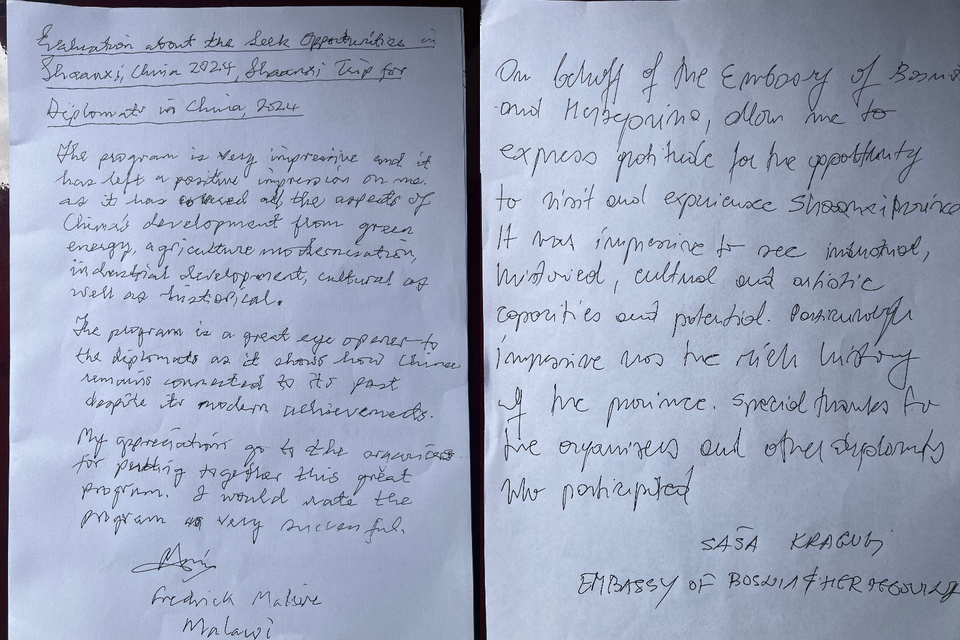 Evaluation about the Seek Opportunities in
Shaanxi, China 2024, Shaanxi Trip for
Diplomats in China, 2024
The program is very impressive and it
has left a positive impression on me.
as it has covered all the aspects of
China's development from green
energy, agriculture modernisation,
industrial development, cultural as
well as historical.
The program is a great eye opener to
the diplomats as it shows how China
remains connected to its past
despite its modern achievements.
My appreciations go to the organisers
for putting together this great
program. I would rate the
program as very successful.
Fredrick
Malawi
On behalf of the Embassy of Bosnia
and Herzegovina, allow me to
express gratitude for the opportunity
to visit and experience Shaanxi province
It was impressive to see industrial,
historical, cultural and artistic
capacities and potential. Particularly
impressive was the rich history
of the province. Special thanks to
the organisers and other diplomats
who participated
SAŠA KRAGULJ
EMBASSY OF BOSNIA & HERZEGOVINA